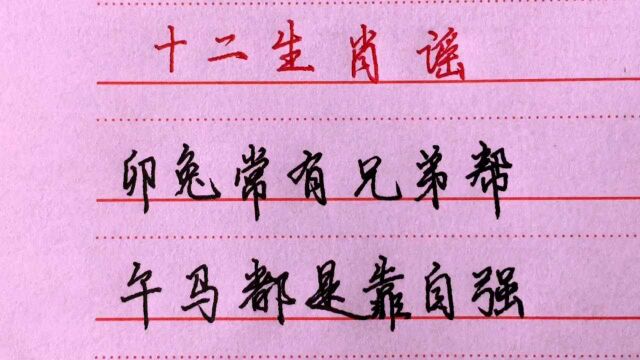 十二生肖谣
卯兔常有兄弟帮
午马都是靠自强